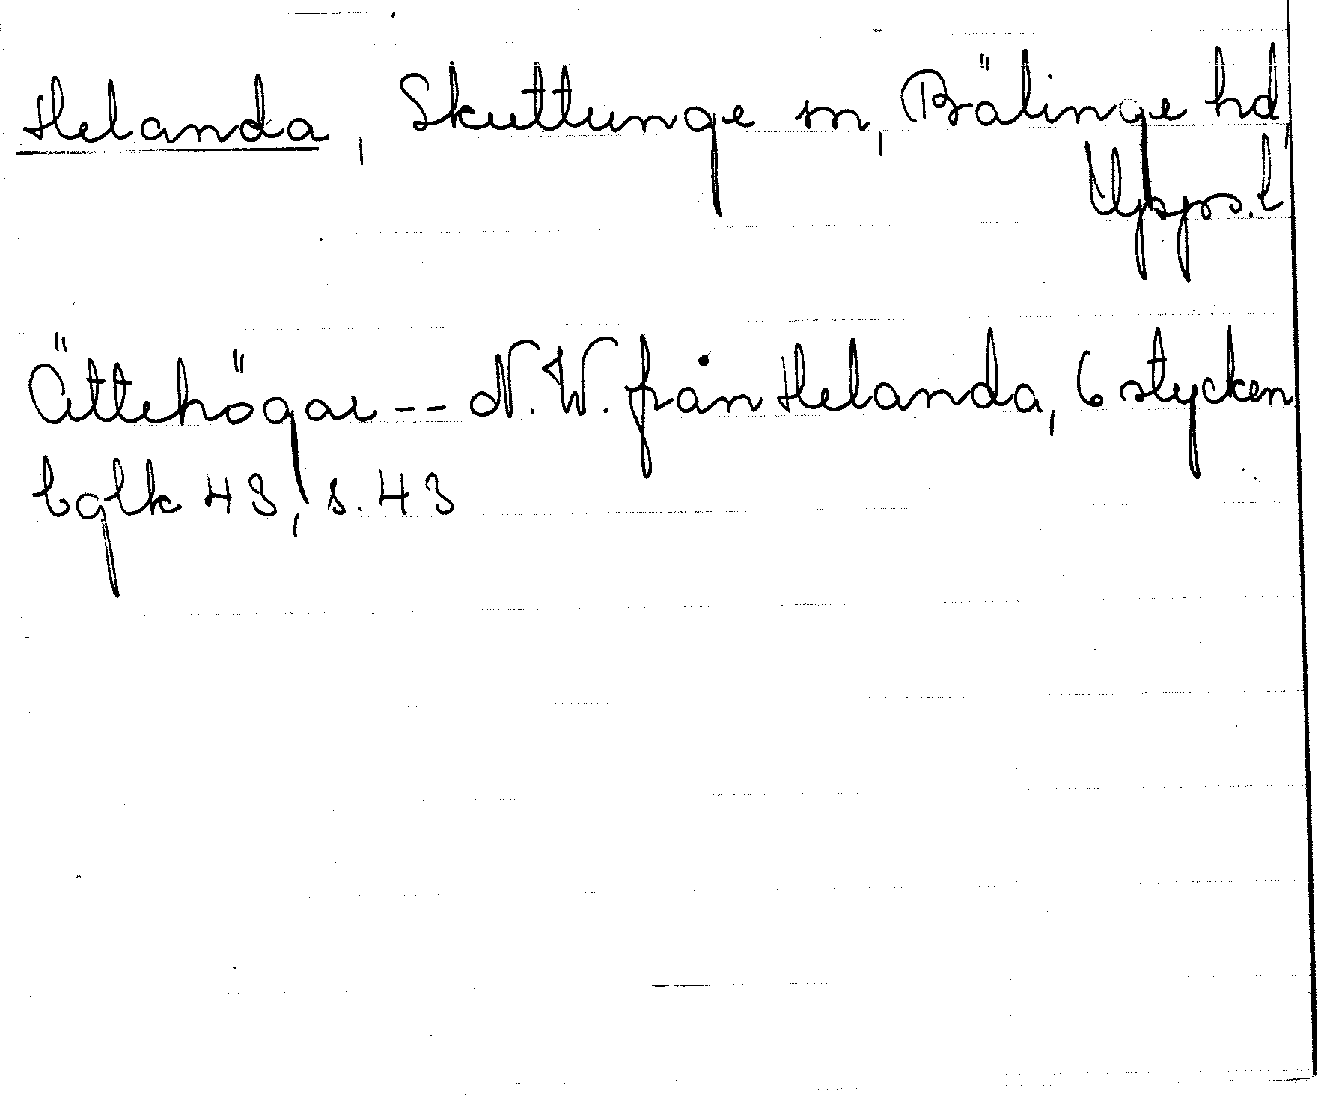 Helanda, Skuttunge sn, Bälinge hd,
Upps. l
Ättehögar -- N.W. från Helanda, 6 stycken
bqlk 43, s. 43